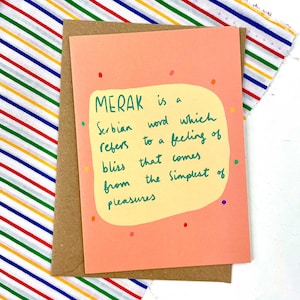 MERAK is a
Serbian word which
refers to a feeling of
bliss that comes
from the simplest of
pleasures